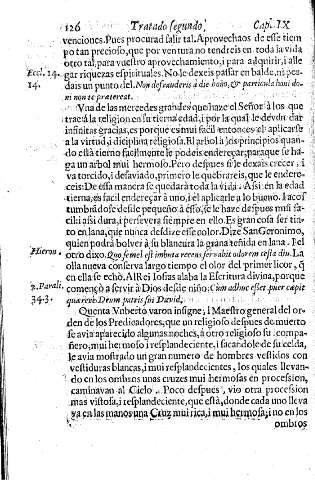 126 Tratado segundo, Cap. IX
venciones. Pues procurad salir tal. Aprovechaos de este tiem
po tan precioso, que por ventura no tendreis en toda la vida
otro tal, para vuestro aprovechamiento, i para adquirir, i alle
Eccl. 14. gar riquezas espirituales. No le dexeis passar en balde, ni per
14. dais un punto del. Non defrauderis à die bono, & particula boni do-
ni non te prætereat.
Vna de las mercedes grandes que haze el Señor à los que
trae à la religion en su tierna edad, i por la qual le devẽn dar
infinitas gracias, es porque es mui facil entonces el aplicarse
a la virtud, i diciplina religiosa. El arbol à los principios quan-
do està tierno facilmente le podeis endereçar, paraque se ha-
ga un arbol mui hermoso. Pero despues si le dexais crecer, i
va torcido, i desaviado, primero le quebrareis, que le endere-
ceis: De essa manera se quedarà toda la vida. Assi en la edad
tierna, es facil endereçar à uno, i el aplicarle a lo bueno. I acos
tumbrãdose desde pequeño à esso, se le haze despues mui fa-
cil i assi dura, i persevera siempre en ello. Es gran cosa ser tin-
to en lana, que nunca desdize esse color. Dize San Geronimo,
quien podrà bolver à su blancura la grana teñida en lana. I el
Hieron. otro dixo. Quo semel est imbuta recens servabit odorem testa diu. La
olla nueva conserva largo tiempo el olor del primer licor, q̃
en ella se echò. Al Rei Josias alaba la Escritura divina, porque
2. Parali. començò a servir à Dios desde niño: Cum adhuc esset puer cæpit
34-3. quærere Deum patris sui David.
Quenta Vnberto varon insigne, i Maestro general del or-
den de los Predicadores, que un religioso despues de muerto
se avia aparecido algunas noches, à otro religioso su compa-
ñero, mui hermoso i resplandeciente, i sacandole de su celda,
le avia mostrado un gran numero de hombres vestidos con
vestiduras blancas, i mui resplandecientes, los quales llevan-
do en los ombros unas cruzes mui hermosas en procession,
caminavan al Cielo. Poco despues, vio otra procession
mas vistosa, i resplandeciente, que està, donde cada uno lleva
va en las manos una Cruz mui rica, i mui hermosa, i no en los
ombros